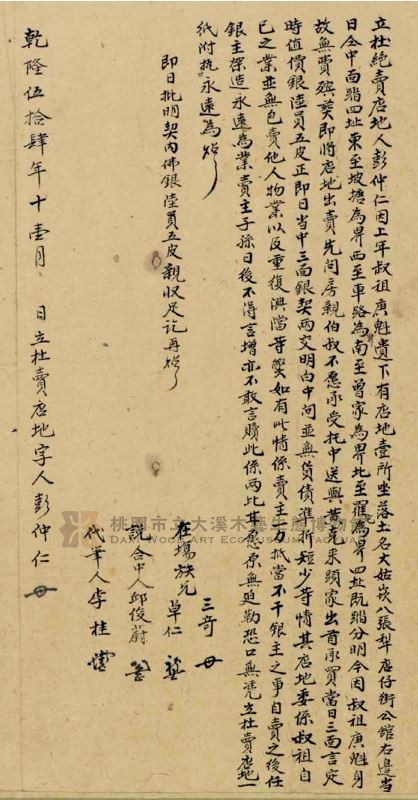 立杜絕賣店地人彭仲仁因上年叔祖庚魁遺下有店地壹所坐落土名大姑崁八張犁店仔街公館右邊當
日仝中面踏四址東至坡塘為界西至車路為界南至曾家為界北至羅宅為界四址既踏分明今因叔祖庚魁身
故無費殯葬即將店地出賣先問房親伯叔不愿承受托中送與黃克來頭家出首承買當日三面言定
時值價銀陸員五皮正即日當中三面銀契兩交明白中间並無負債準折短少等情其店地委係叔祖自
己之業並無包賣他人物業以及重復典當等獘如有此情係賣主一力抵當不干銀主之事自賣之後任
銀主架造永遠為業賣主子孫日後不得言增亦不敢言贖此係兩比甘愿原無迫勒恐口無凴立杜賣店地一
紙附执永遠為炤
即日批明契內佛銀陸員五皮親收足訖再炤
三奇
在塲族兄
卓仁
說合中人邱俊蔚
代筆人李桂
乾隆伍拾肆年十壹月 日立杜賣店地字人彭仲仁
桃園市立大溪木藝生態博物館
DAXI WOOD ART ECOMUSEUM